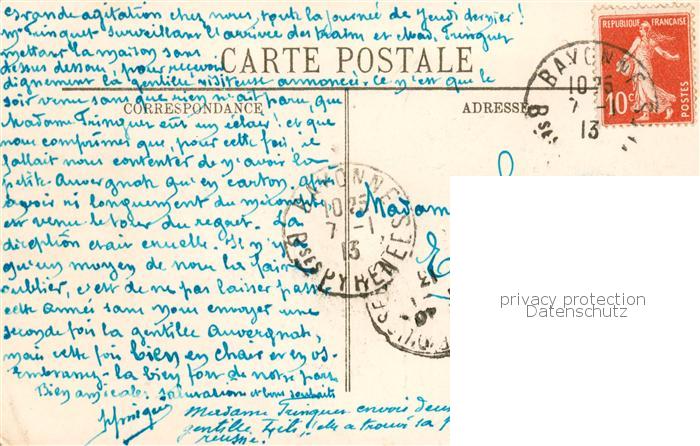 Grande agitation chez nous toute la journée de Jeudi dernier !
Mr Tringuet surveillant l'arrivée des trains et Mad. Tringuet
mettant la maison sans
dessus dessous, pour recevoir
dignement la gentille visiteuse annoncée. Ce n'est que le
soir venu sans que rien n'ait paru, que
Madame Tringuet eut un éclair ! et que
nous comprîmes que, pour cette fois, il
fallait nous contenter de n'avoir la
petite Auvergnate qu'en carton. Après
avoir ri longuement du
est venu le tour du regret. La
déception était cruelle. Il n'y a
qu'un moyen de nous la faire
oublier, c'est de ne pas laisser passer
cette année sans nous envoyer une
seconde fois la gentille Auvergnate,
mais cette fois bien en chair et en os.
Embrassez-la bien fort de notre part
Bien amicales salutations et bons souhaits
Madame Tringuet envoie deux
gentille
réussie.
CARTE POSTALE
CORRESPONDANCE
ADRESSE
REPUBLIQUE FRANÇAISE
10c
POSTES
BAYONNE
10 25
7 -1
13
Bses
BAYONNE
10 25
7 -1
13
Bses PYRENEES
Madam
privacy protection
Datenschutz